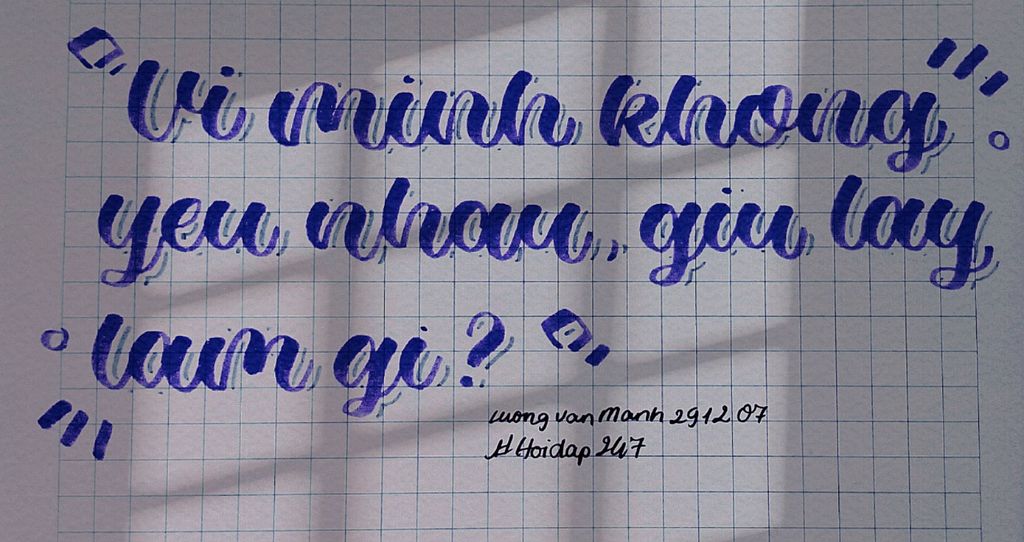 Vi minh khong
yeu nhau, giu lay
lam gi?
Luong van manh 291207
#Hoidap247